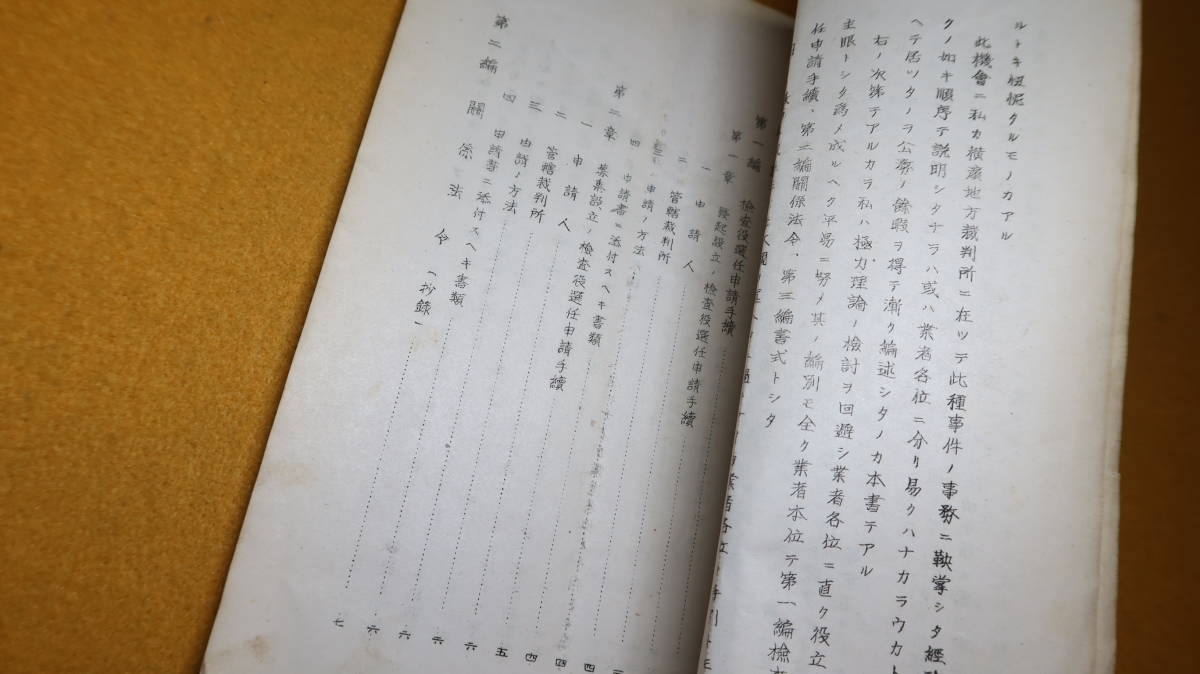 ルトキ忸怩タルモノカアル
此機會ニ私カ橫濱地方裁判所ニ在ツテ此種事件ノ事務ニ鞅掌シタ經
クノ如キ順序テ說明シタナラハ或ハ業者各位ニ分リ易クハナカラウカト
ヘテ居ツタノヲ公務ノ餘暇ヲ得テ漸ク編述シタノカ本書テアル
右ノ次第テアルカラ私ハ極力理論ノ檢討ヲ回避シ業者各位ニ直ク役立
主眼トシタ爲メ成ルヘク平易ニ努メ其ノ編別モ全ク業者本位テ第一編檢
任申請手續、第二編關係法令、第三編書式トシタ
第一編 檢査役選任申請手續
第一章 發起設立ノ檢査役選任申請手續
一 申請人
二 管轄裁判所
三 申請ノ方法
四 申請書ニ添付スヘキ書類
第二章 募集設立ノ檢査役選任申請手續 四
一 申請人 四
二 管轄裁判所 四
三 申請ノ方法 五
四 申請書ニ添付スヘキ書類 六
第二編 關係法令(抄錄) 六
六
六
七